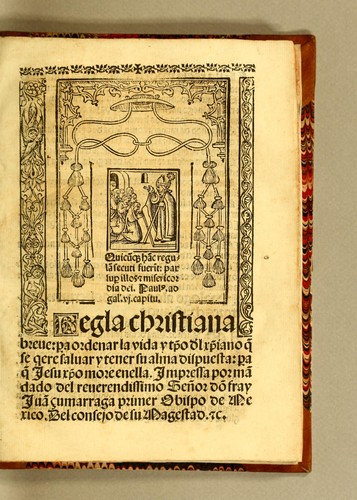 Quicūqꝫ hāc regu-
lā secuti fuerīt: pax
sup illos⁊ misericor
dia dei. Paulꝰ. ad
gal. vj. capitu.
Regla christiana
breue: pa ordenar la vida y tp̄o dl xp̄iano q̄
se q̄ere saluar y tener su alma dispuesta: pa
q̄ Jesu xp̄o more en ella. Impressa por mā
dado del reuerendissimo Señor dō fray
Juā çumarraga primer Obispo de Me
xico. Del consejo de su Magestad. ⁊c.